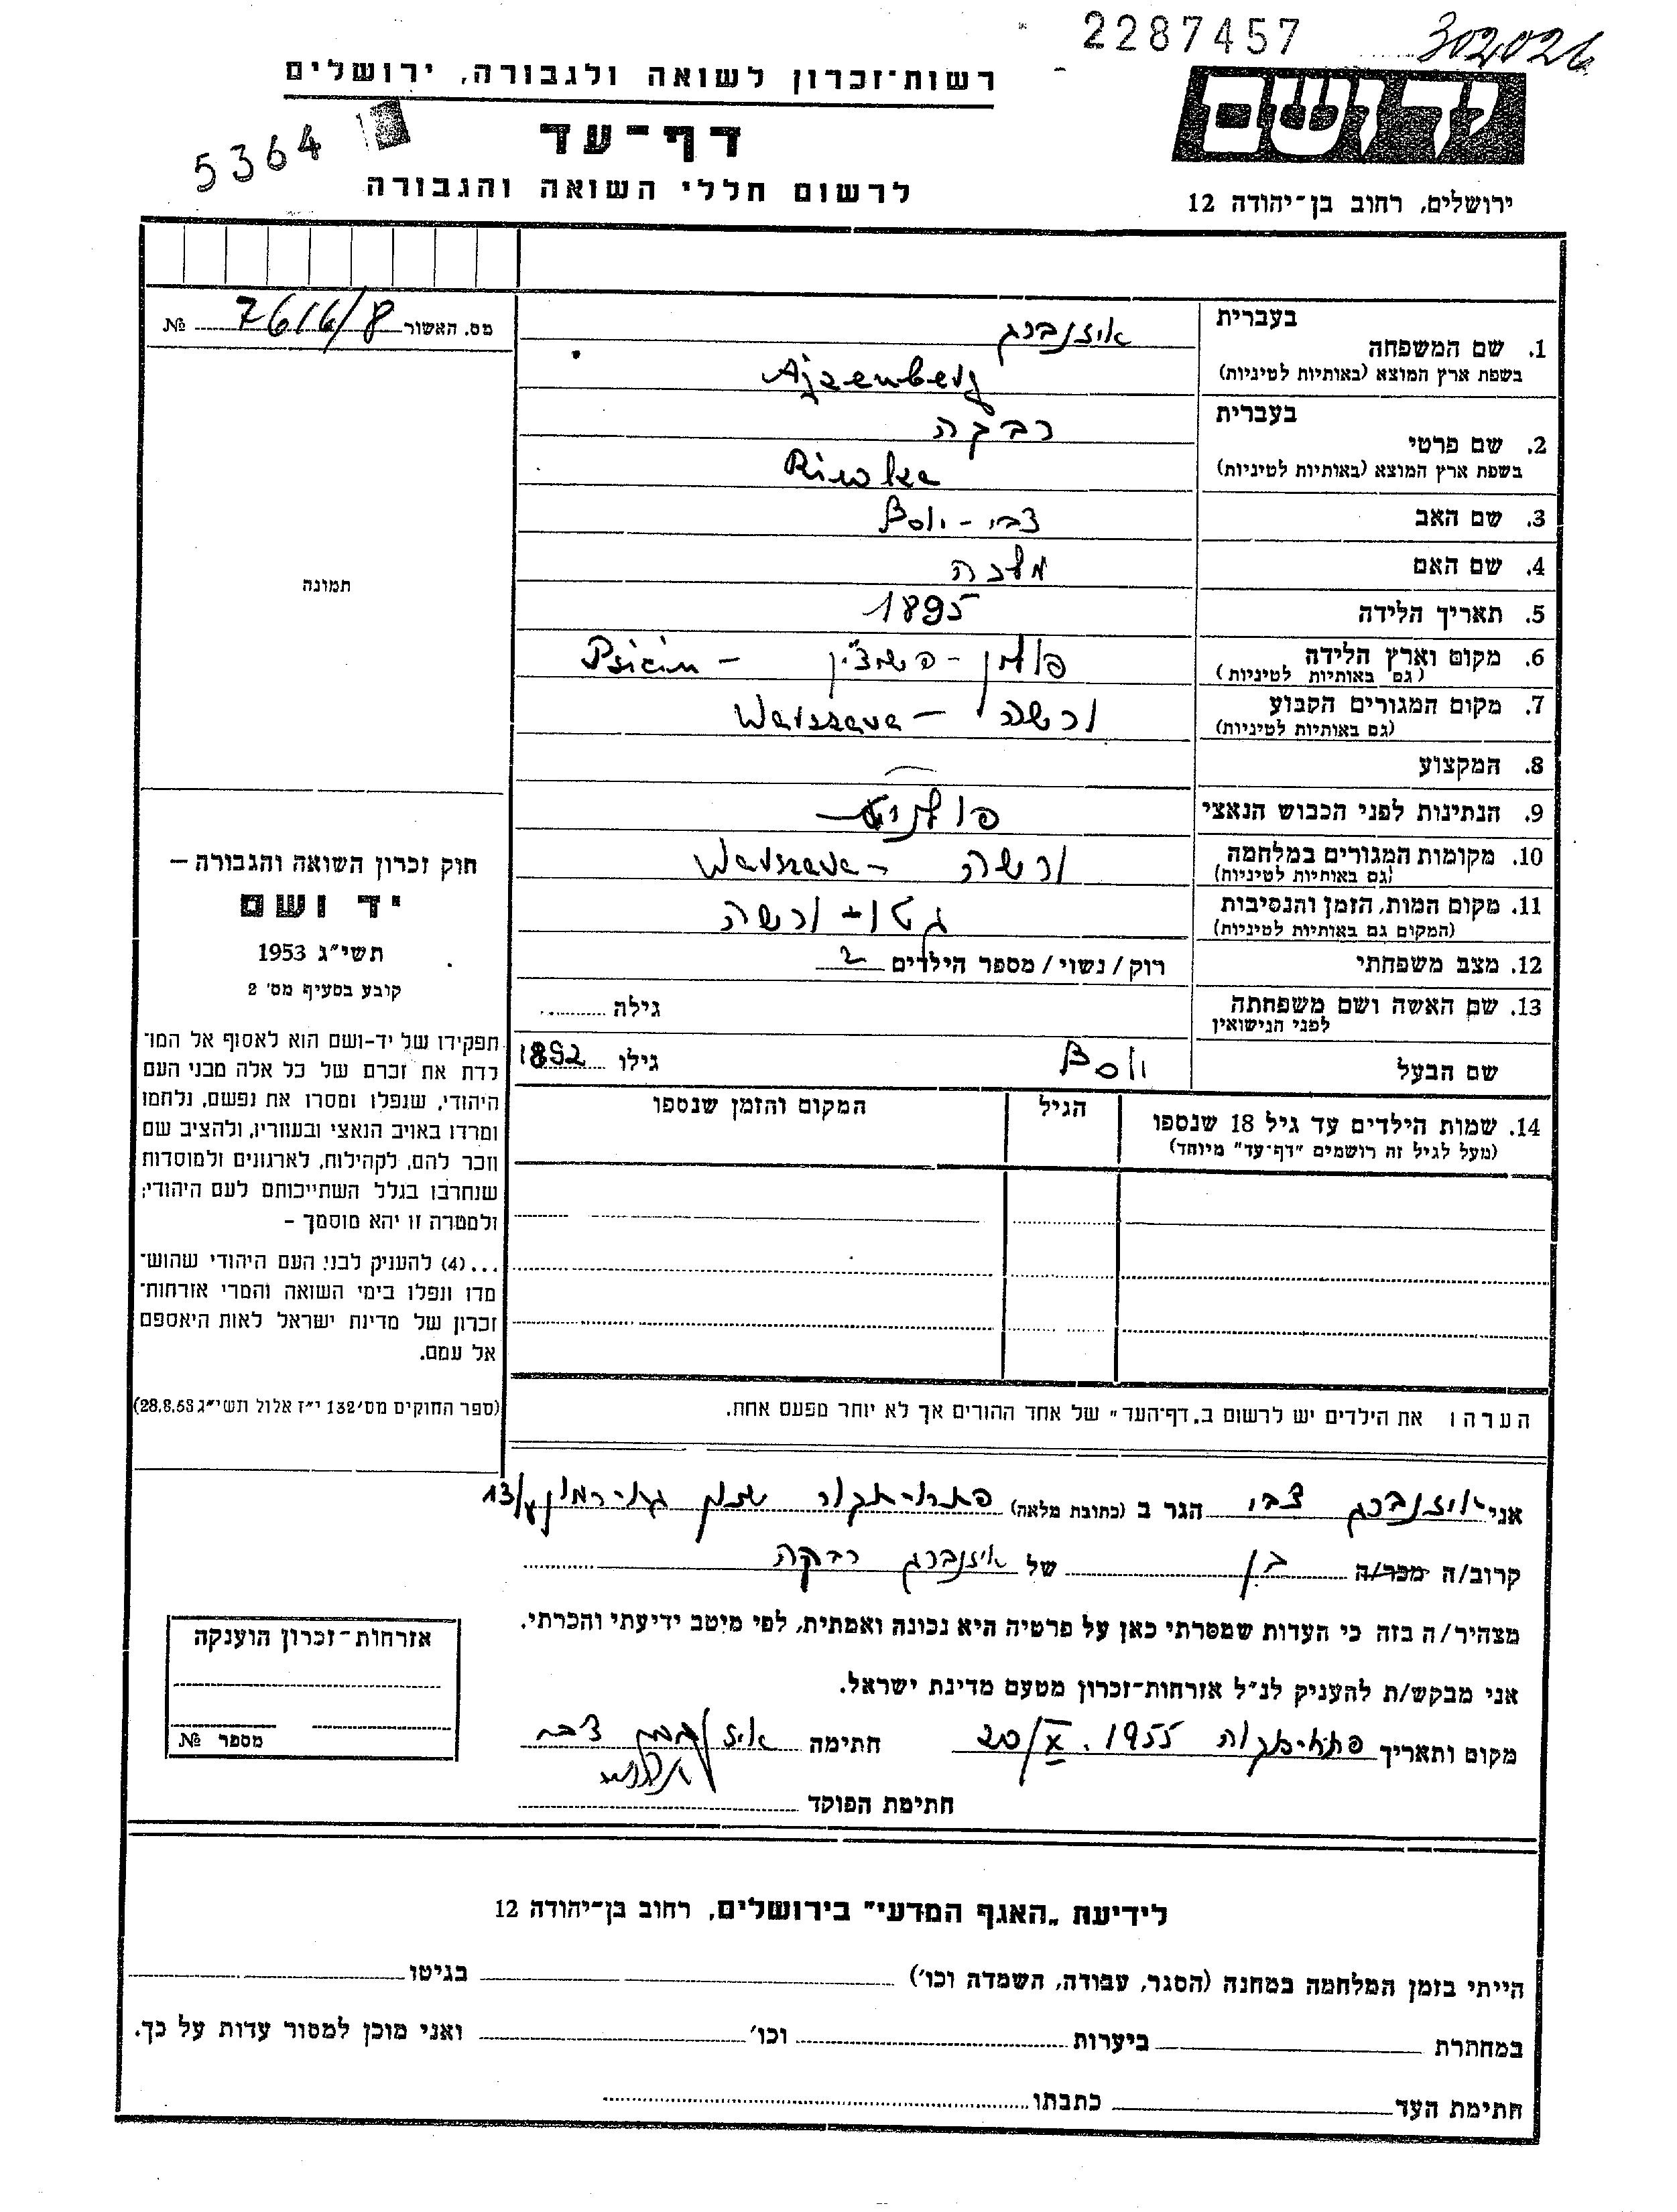 2287457
302026
רשות־זכרון לשואה ולגבורה, ירושלים
5364
דף־עד
לרשום חללי השואה והגבורה
ידושם
ירושלים, רחוב בן־יהודה 12
מס. האשור 7616/8 №
תמונה
חוק זכרון השואה והגבורה –
יד ושם
תשי״ג 1953
קובע בסעיף מס׳ 2
תפקידו של יד-ושם הוא לאסוף אל המו־
לדת את זכרם של כל אלה מבני העם
היהודי, שנפלו ומסרו את נפשם, נלחמו
ומרדו באויב הנאצי ובעוזריו, ולהציב שם
וזכר להם, לקהילות, לארגונים ולמוסדות
שנחרבו בגלל השתייכותם לעם היהודי;
ולמטרה זו יהא מוסמך –
...(4) להעניק לבני העם היהודי שהוש־
מדו ונפלו בימי השואה והמרי אזרחות־
זכרון של מדינת ישראל לאות היאספם
אל עמם.
(ספר החוקים מס׳ 132 י״ז אלול תשי״ג 28.8.53)
בעברית
איזנברג
1. שם המשפחה
בשפת ארץ המוצא (באותיות לטיניות)
Ajzenberg
בעברית
רבקה
2. שם פרטי
בשפת ארץ המוצא (באותיות לטיניות)
Riwka
3. שם האב צבי - יוסף
4. שם האם מלכה
5. תאריך הלידה 1895
6. מקום וארץ הלידה פולין - – 
(גם באותיות לטיניות)
7. מקום המגורים הקבוע ורשה – Warszawa
(גם באותיות לטיניות)
8. המקצוע —
9. הנתינות לפני הכבוש הנאצי פולנית
10. מקומות המגורים במלחמה ורשה – Warszawa
(גם באותיות לטיניות)
11. מקום המות, הזמן והנסיבות גטו - ורשה
(המקום גם באותיות לטיניות)
12. מצב משפחתי רוק/נשוי/מספר הילדים 2
13. שם האשה ושם משפחתה גילה
לפני הנישואין
שם הבעל יוסף גילו 1892
14. שמות הילדים עד גיל 18 שנספו הגיל המקום והזמן שנספו
(מעל לגיל זה רושמים "דף־עד" מיוחד)
הערה: את הילדים יש לרשום ב„דף־העד״ של אחד ההורים אך לא יותר מפעם אחת.
אני איזנברג צבי הגר ב (כתובת מלאה) פתח-תקוה גת-רמון 13/
קרוב/ה מכר/ה בן של איזנברג רבקה
מצהיר/ה בזה כי העדות שמסרתי כאן על פרטיה היא נכונה ואמתית, לפי מיטב ידיעתי והכרתי.
אני מבקש/ת להעניק לנ״ל אזרחות־זכרון מטעם מדינת ישראל.
מקום ותאריך פתח-תקוה 20/X. 1955 חתימה איזנברג צבי
חתימת הפוקד
אזרחות־זכרון הוענקה
מספר №
לידיעת „האגף המדעי״ בירושלים, רחוב בן־יהודה 12
הייתי בזמן המלחמה במחנה (הסגר, עבודה, השמדה וכו׳) בגיטו
במחתרת ביערות וכו׳ ואני מוכן למסור עדות על כך.
חתימת העד כתבתו